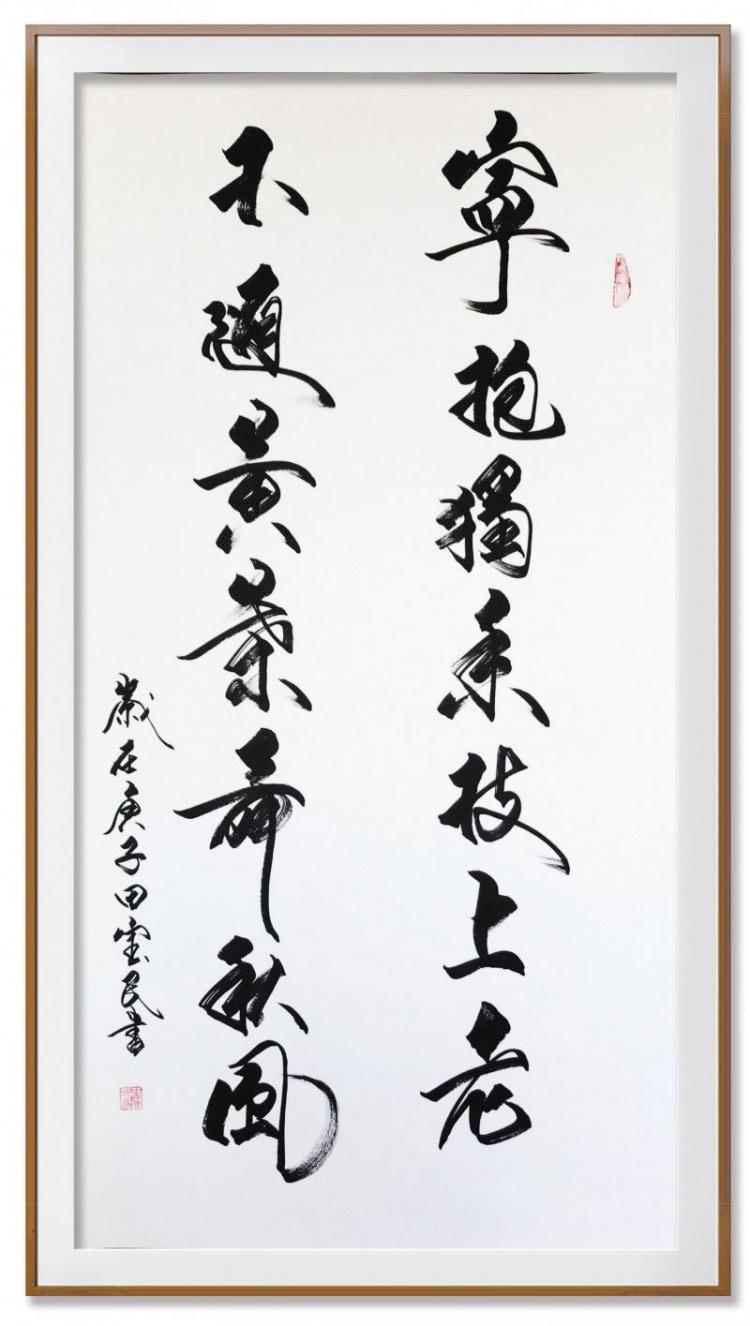 寧抱獨枝上老
不隨黃葉舞秋風
歲在庚子田民書